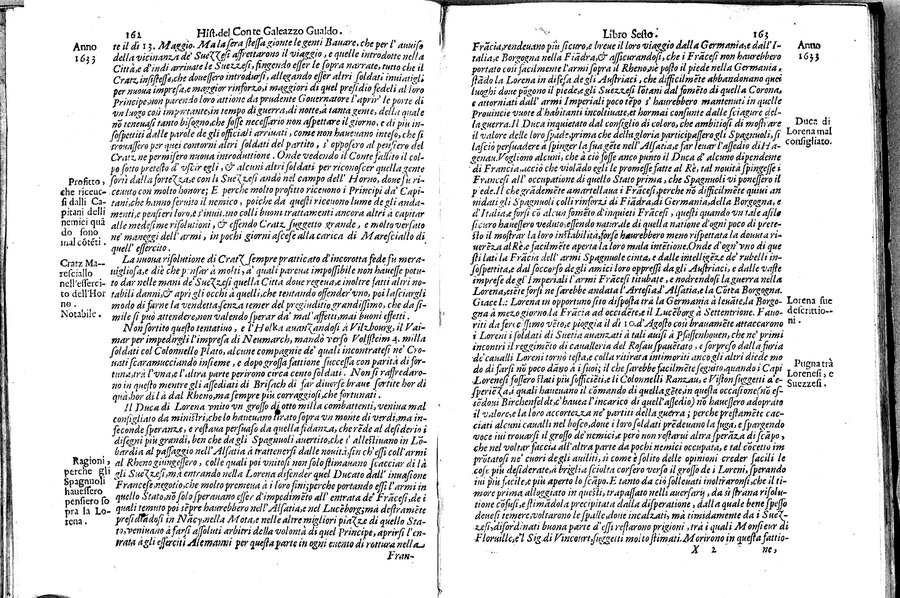 162 Hist. del Conte Galeazzo Gualdo.
Anno
1633
te il di 13. Maggio. Ma la sera stessa gionte le genti Bauare, che per l' auuiso
della vicinanza de' Suezzesi affrettarono il viaggio, e quelle introdotte nella
Città, e d'indi arrinate le Suezzesi, fingendo esser le sopra narrate, tutto che il
Cratz insistesse, che douessero introdursi, allegando esser altri soldati inuiatigli
per nuoua impresa, e maggior rinforzo, i maggiori di quel presidio fedeli al loro
Principe, non parendo loro attione da prudente Gouernatore l'aprir' le porte di
vn luogo così importante, in tempo di guerra, di notte, à tanta gente, della quale
nō teneuasi tanto bisogno, che fosse necessario non aspettare il giorno, e di più in-
sospettiti dalle parole de gli officiali arriuati, come non haueuano inteso, che si
trouassero per quei contorni altri soldati del partito, s' opposero al pensiero del
Cratz ne permisero nuoua introduttione. Onde vedendo il Conte fallito il col-
po sotto pretesto d' vscir egli, & alcuni altri soldati per riconoscer quella gente
sortì dalla fortezza, e con li Suezzesi andò nel campo dell' Horno, doue fù ri-
ceuuto con molto honore; E perche molto profitto riceuono i Principi da' Capi-
tani, che hanno seruito il nemico, poiche da questi riceuono lume de gli anda-
menti, e pensieri loro, e s'inuitano colli buoni trattamenti ancora altri à capitar
alle medesime risolutioni, & essendo Cratz suggetto grande, e molto versato
ne' maneggi dell' armi, in pochi giorni ascese alla carica di Maresciallo di
quell' essercito.
Profitto,
che riceuo-
si dalli Ca-
pitani delli
nemici quā
do sono
mal cōtēti.
La nuoua risolutione di Cratz sempre pratticato d'incorotta fede fù mera-
uigliosa, e diè che pensar à molti, a' quali pareua impossibile non hauesse potu-
to dar nelle mani de' Suezzesi quella Città doue regeua, e inoltre fatti altri no-
tabili danni, & aprì gli occhi a quelli, che tentando offender' vno, poi lasciargli
modo di farne la vendetta, senza temer del pregiuditio grandissimo, che da si-
mile si può attendere, non valendo sperar da' mal' affetti, mai buoni effetti.
Cratz Ma-
resciallo
nell'esserci-
to dell'Hor
no.
Notabile.
Non sortito questo tentatiuo, e l'Holka auanzandosi à Vilzbourg, il Vai-
mar per impedirgli l'impresa di Neumarch, mandò verso Volfsteim 4. milla
soldati col Colonnello Plato, alcune compagnie de' quali incontratesi ne' Cro-
uati scaramucciando insieme, e dopo grossa fattione successa con parità di for-
tuna, trà l'vna, e l'altra parte perirono circa cento soldati. Non si raffredaro-
no in questo mentre gli assediati di Brisach di far diuerse braue sortite hor di
quà hor di là dal Rheno, ma sempre più corraggiosi, che fortunati.
Il Duca di Lorena vnito vn grosso di otto milla combattenti, veniua mal
consigliato da ministri, che lo haueuano tirato sopra vn monte di verdi, ma in-
feconde speranze, e restaua persuaso da quella fidanza, che rēde al desiderio i
disegni più grandi, ben che da gli Spagnuoli auertito, che s' allestiuano in Lō-
bardia al passaggio nell' Alsatia à trattenersi dalle nouità, sin ch'essi coll'armi
al Rheno giungessero, colle quali poi vnitosi non solo stimauano scacciar di là
gli Suezzesi, mà entrando nella Lorena difender quel Ducato dall' inuasione
Francese, negotio, che molto premeua à i loro fini; perche portando essi l'armi in
quello Stato, nō solo sperauano esser d'impedimēto all' entrata de' Frācesi, de i
quali temuto poi sēpre haurebbero nell'Alsatia, e nel Lucēborg; ma destramēte
presidiādosi in Nācy, nella Mota, e nelle altre migliori piazze di quello Sta-
to, veniuano à farsi assoluti arbitri della volontà di quel Principe, aprirsi l'en-
trata à gli esserciti Alemanni per questa parte in ogni euento di rottura nella
Ragioni,
perche gli
Spagnuoli
hauessero
pensiero so
pra la Lo-
rena.
Fran-
Libro Sesto. 163
Anno
1633
Frācia, rendeuano più sicuro, e breue il loro viaggio dalla Germania, e dall' I-
talia, e Borgogna nella Fiādra, & assicurandosi, che i Frācesi non haurebbero
portato così facilmente l'armi sopra il Rheno, nè posto il piede nella Germania,
siēdo la Lorena in difesa de gli Austriaci, che difficilmente abbandonano quei
luoghi doue pōgono il piede, e gli Suezzesi lōtani dal fomēto di quella Corona,
e attorniati dall' armi Imperiali poco tēpo s' haurebbero mantenuti in quelle
Prouincie vuote d' habitanti incoltiuate, et hormai consunte dalle sciagure del-
la guerra. Il Duca inquietato dal consiglio di coloro, che ambitiosi di mostrare
il valore delle loro spade, prima che della gloria participassero gli Spagnuoli, si
lasciò persuadere à spinger la sua gēte nell' Alsatia, e far leuar l'assedio di Ha-
genau. Vogliono alcuni, che à ciò fosse anco punto il Duca d' alcuno dipendente
di Francia, acciò che violādo egli le promesse fatte al Rè, tal nouità spingesse i
Francesi all' occupatione di quello Stato prima, che Spagnuoli vi ponessero il
piede. Il che grādemēte amartellaua i Frācesi, perche nō difficilmēte quiui an
nidati gli Spagnuoli colli rinforzi di Fiādra, di Germania, della Borgogna, e
d' Italia, e forsi cō alcuo fomēto d'inquieti Frācesi, questi quando vn tale asilo
sicuro hauessero veduto, essendo naturale di quella natione d' ogni poco di prete-
sto il mostrar la loro instabilità, forse haurebbero meno rispettata la douuta ri-
uerēza al Rè, e facilmēte aperta la loro mala intētione. Onde d'ogn'vno di que
sti lati la Frācia dell' armi Spagnuole cinta, e dalle intelligēze de' rubelli in-
sospettita, e dal soccorso de gli amici loro oppressi da gli Austriaci, e dalle vaste
imprese de gl' Imperiali l' armi Frācesi titubate, e rodrendosi la guerra nella
Lorena, esēte forsi ne sarebbe andata l'Artesia, l' Alsatia, e la Cōtea Borgogna.
Duca di
Lorena mal
consigliato.
Giace l: Lorena in opportuno sito disposta trà la Germania à leuāte, la Borgo-
gna à mezogiorno, la Frācia ad occidēte, e il Lucēborg à Settentrione. Fauo-
riti da fauorestissimo vēto, e pioggia il dì 10. d' Agosto così brauamēte attaccarono
i Loreni i soldati di Suetia auanzati à tali auuisi à Pfaffenhouen, che ne' primi
incontri il reggimēto di caualleria del Rosau sbaragliato, e sorpreso dalla furia
de' caualli Loreni tornò testa, e colla ritirata intimorì ancora gli altri diede mo
do di farsi nō poco dāno à i suoi; il che sarebbe facilmēte seguito, quando i Capi
Lorenesi fossero stati più sofficiēti, e li Colonnelli Ranzau, e Viston suggetti d'e-
speriēza, i quali haueuano il comando di quella gēte, in questa occasione, (nō es-
sēdoui Birchenfeldt, e haueua l'incarico di quell' assedio) nō hauessero adoprato
il valore, e la loro accortezza ne' partiti della guerra; perche prestamēte cac-
ciati alcuni caualli nel bosco, doue i loro soldati prēdeuano la fuga, e spargendo
voce iui trouarsi il grosso de' nemici, e però non restarui altra sperāza di scāpo,
che nel voltar faccia all' altra parte da pochi nemici occupata, e tal cōcetto im
prōtatosi ne' cuori de gli auiliti, e come è solito delle opinioni creder facili le
cose più desiderate, à briglia sciolta corsero verso il grosso de i Loreni, sperando
iui più facile, e più aperto lo scāpo. E tanto da ciò solleuati inoltraronsi, che il ti-
more prima alloggiato in questi, trapassato nelli auersarij, da sì strana risolu-
tione cōfusi, e stimādola precipitata dalla disperatione, dalla quale bene spesso
denesi temere, voltarono le spalle, doue incalzati, mà timidamente da i Suez-
zesi, disordinati buona parte d' essi restarono prigioni, trà i quali Monsieur de
Floruille, e il Sig. di Vincourt, suggetti molto stimati. Morirono in questa fattio-
Lorena sue
descrittio-
ni.
Pugna trà
Lorenesi, e
Suezzesi.
X 2 ne,